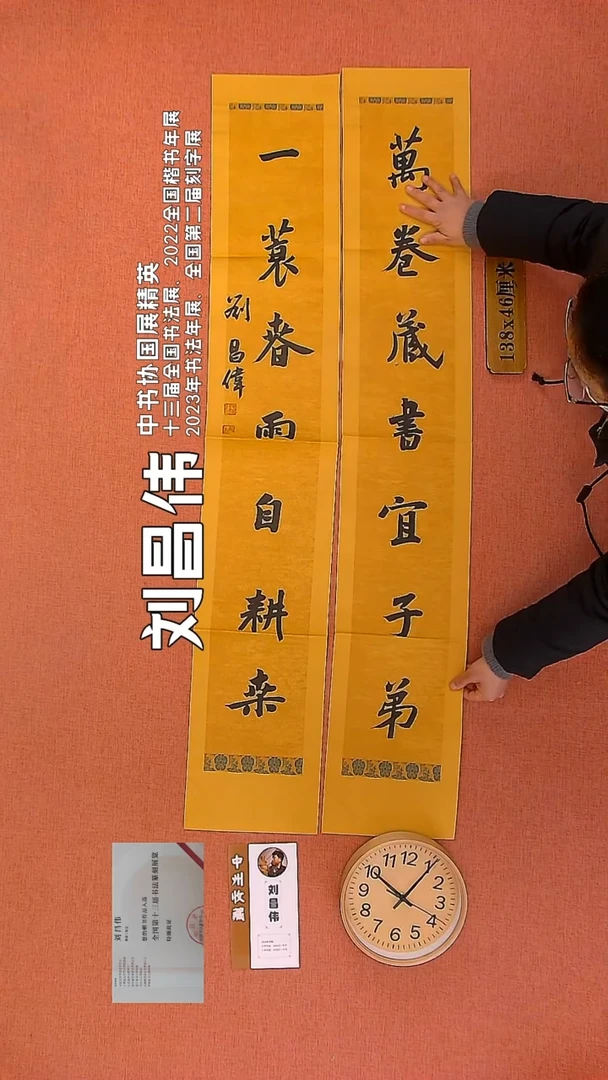 萬卷蔵書宜子弟
一蓑春雨自耕桒
劉昌偉
138x46厘米
中书协国展精英
十三届全国书法展、2022全国楷书年展
2023年书法年展、全国第二届刻字展
刘昌伟
刘昌伟
全国第十三届书法篆刻展览
特颁此证
刘昌伟
12
1
2
3
4
5
6
7
8
9
10
11